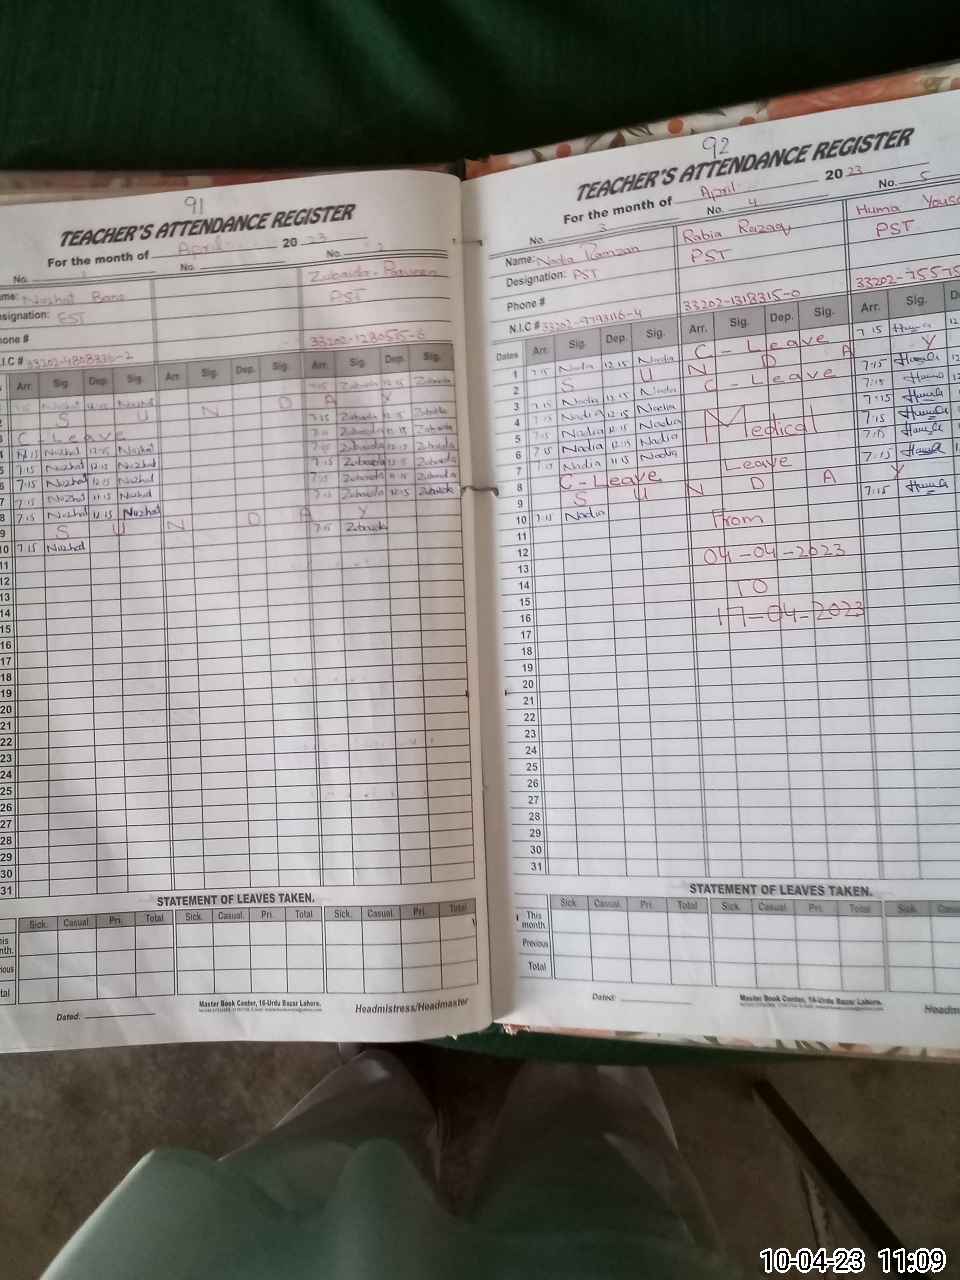 91
TEACHER'S ATTENDANCE REGISTER
For the month of April 2023
No. 1 No. No. 2
Name: Nuzhat Bano Zubaida Parveen
Designation: EST PST
Phone #
N.I.C # 33202-4808336-2 33202-1280535-6
Arr. Sig. Dep. Sig. Arr. Sig. Dep. Sig. Arr. Sig. Dep. Sig.
7:15 Nuzhat 12:15 Nuzhat 7:15 Zubaida 12:15 Zubaida
S U N D A Y
C-Leave 7:15 Zubaida 12:15 Zubaida
4 7:15 Nuzhat 12:15 Nuzhat 7:15 Zubaida 12:15 Zubaida
5 7:15 Nuzhat 12:15 Nuzhat 7:15 Zubaida 12:15 Zubaida
6 7:15 Nuzhat 12:15 Nuzhat 7:15 Zubaida 12:15 Zubaida
7 7:15 Nuzhat 11:15 Nuzhat 7:15 Zubaida 11:15 Zubaida
8 7:15 Nuzhat 12:15 Nuzhat 7:15 Zubaida 12:15 Zubaida
9 S U N D A Y
10 7:15 Nuzhat 7:15 Zubaida
11
12
13
14
15
16
17
18
19
20
21
22
23
24
25
26
27
28
29
30
31
STATEMENT OF LEAVES TAKEN.
Sick. Casual. Pri. Total Sick. Casual. Pri. Total Sick. Casual. Pri. Total
Master Book Center, 16-Urdu Bazar Lahore.
Dated: Headmistress/Headmaster
92
TEACHER'S ATTENDANCE REGISTER
For the month of April 2023
No. 3 No. 4 No. 5
Name: Nadia Ramzan Rabia Razaq Huma
Designation: PST PST PST
Phone #
N.I.C # 33202-9793116-4 33202-1318315-0 33202-75575
Dates Arr. Sig. Dep. Sig. Arr. Sig. Dep. Sig. Arr. Sig.
1 7:15 Nadia 12:15 Nadia C-Leave 7:15 Huma 12
2 S U N D A Y
3 7:15 Nadia 12:15 Nadia C-Leave 7:15 Huma
4 7:15 Nadia 12:15 Nadia Medical 7:15 Huma
5 7:15 Nadia 12:15 Nadia 7:15 Huma
6 7:15 Nadia 12:15 Nadia 7:15 Huma
7 7:15 Nadia 11:15 Nadia 7:15 Huma
8 C-Leave Leave 7:15 Huma
9 S U N D A Y
10 7:15 Nadia From 7:15 Huma
11
12 04-04-2023
13
14 TO
15
16 17-04-2023
17
18
19
20
21
22
23
24
25
26
27
28
29
30
31
STATEMENT OF LEAVES TAKEN.
Sick. Casual. Pri. Total Sick. Casual. Pri. Total Sick.
This month.
Previous
Total
Dated: Master Book Center, 16-Urdu Bazar Lahore.
10-04-23 11:09